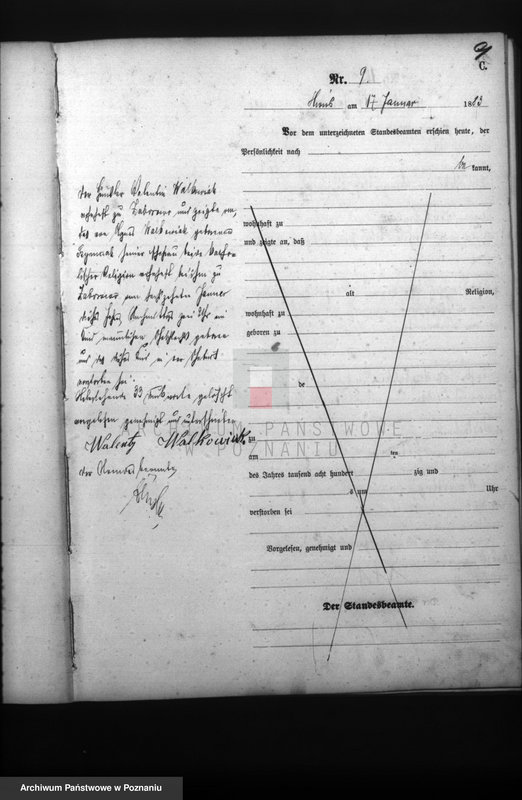 9
C.
Nr. 9.
am 17 Januar 1883
Vor dem unterzeichneten Standesbeamten erschien heute, der
Persönlichkeit nach
be kannt,
Der Häusler Valentin Walkowiak
wohnhaft zu und zeigte an,
daß von Agnes Walkowiak geborenen
seiner Ehefrau, beide katho-
lischer Religion wohnhaft bei ihm zu
am Januar
dieses Jahres, Nachmittags Uhr ein
Kind männlichen Geschlechts geboren
und daß dieses Kind in der Geburt
verstorben sei.
33 Druckworte gelöscht
Vorgelesen genehmigt und unterschrieben
Walenty Walkowiak
Der Standesbeamte
wohnhaft zu
und zeigte an, daß
alt Religion,
wohnhaft zu
geboren zu
de
zu
am ten
des Jahres tausend acht hundert zig und
s um Uhr
verstorben sei
Vorgelesen, genehmigt und
Der Standesbeamte.
ARCHIWUM PAŃSTWOWE
W POZNANIU
Archiwum Państwowe w Poznaniu